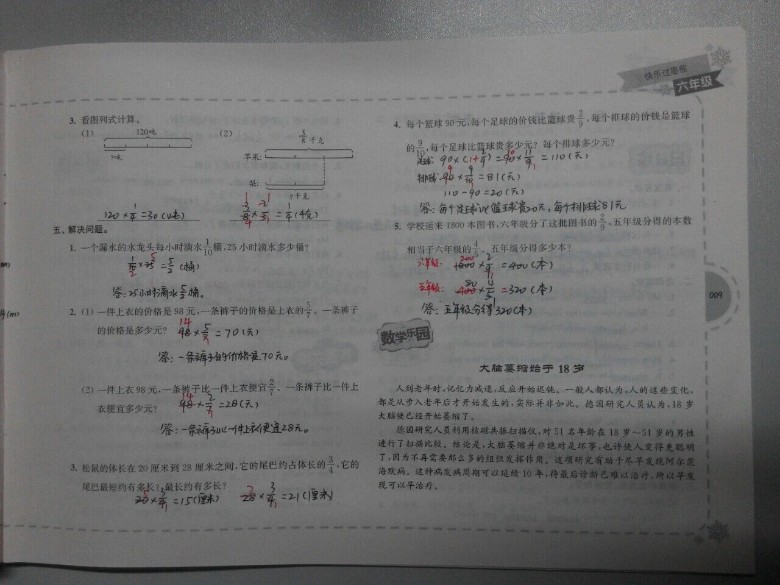 快乐过寒假
六年级
3. 看图列式计算。
(1)
120吨
?吨
(2)
5/8千克
苹果:
梨:
?千克
120×1/4=30(吨)
五、解决问题。
1. 一个漏水的水龙头每小时滴水1/10桶,25小时滴水多少桶?
1/10×25=5/2(桶)
答:25小时滴水5/2桶。
2. (1) 一件上衣的价格是98元,一条裤子的价格是上衣的5/7。一条裤子
的价格是多少元?
98×5/7=70(元)
答:一条裤子的价格是70元。
(2) 一件上衣98元,一条裤子比一件上衣便宜2/7。一条裤子比一件上
衣便宜多少元?
98×2/7=28(元)
答:一条裤子比一件上衣便宜28元。
3. 松鼠的体长在20厘米到28厘米之间,它的尾巴约占体长的3/4,它的
尾巴最短约有多长?最长约有多长?
20×3/4=15(厘米)
28×3/4=21(厘米)
4. 每个篮球90元,每个足球的价钱比篮球贵2/9,每个排球的价钱是篮球
的9/10,每个足球比篮球贵多少元?每个排球多少元?
足球:90×(1+2/9)=90×11/9=110(元)
排球:90×9/10=81(元)
110-90=20(元)
答:每个足球比篮球贵20元,每个排球81元
5. 学校运来1800本图书,六年级分了这批图书的2/9,五年级分得的本数
相当于六年级的4/5。五年级分得多少本?
六年级:1800×2/9=400(本)
五年级:400×4/5=320(本)
答:五年级分得320(本)
009
数学乐园
大脑萎缩始于18岁
人到老年时,记忆力减退,反应开始迟钝。一般人都认为,人的这些变化,
都是从步入老年后才开始发生的,实际并非如此。德国研究人员认为,18岁
大脑便已经开始萎缩了。
德国研究人员利用核磁共振扫描仪,对51名年龄在18岁~51岁的男性
进行了扫描比较。结论是,大脑萎缩并非绝对是坏事,也许使人变得更聪明
了,因为不再需要那么多的组织发挥作用。这项研究有助于尽早发现阿尔茨
海默病。这种病发病周期可以延续10年,待最后诊断已难以治疗,所以早发
现可以早治疗。